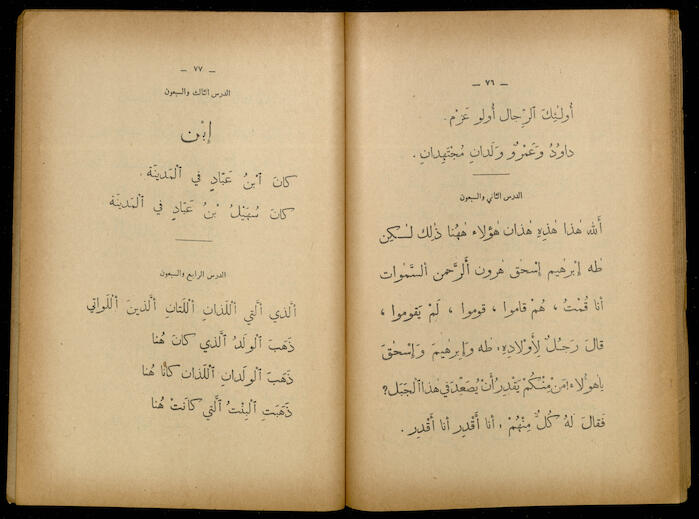 — ٧٦ —
أُولٰئِكَ ٱلرِّجال أُولو عَزْم .
داوُدُ وَعَمْرٌو وَلَدانِ مُجْتَهِدانِ .
الدرس الثاني والسبعون
أَللّٰه هٰذا هٰذِهِ هٰذان هٰؤُلاء هٰهُنا ذٰلِك لٰكِن
طٰه إِبْرهيم إِسْحٰق هٰرون أَلرَّحمن السَّمٰوات
أنا قُمْتُ ، هُمْ قاموا ، قوموا ، لَمْ يَقوموا ،
قالَ رَجُلٌ لِأَوْلادِهِ ، طٰه وَإِبرهيمَ وَإِسْحٰقَ
ياهؤُلاء ! مَنْ مِنْكُمْ يَقْدِرُ أَنْ يَصْعَدَ في هٰذا ٱلْجَبَل ؟
فَقالَ لَهُ كُلٌّ مِنْهُمْ ، أَنا أَقْدِر أَنا أَقْدِر .
— ٧٧ —
الدرس الثالث والسبعون
إِبْن
كانَ ٱبْنُ عَبّادٍ في ٱلْمَدينَة .
كانَ سُهَيْلُ بْنُ عَبّادٍ في ٱلْمَدينَة
الدرس الرابع والسبعون
أَلَّذي أَلَّتي أَللَّذانِ أَللَّتانِ أَلَّذينَ أَللَّواتي
ذَهَبَ ٱلْوَلَدُ ٱلَّذي كانَ هُنا
ذَهَبَ ٱلْوَلَدانِ ٱللَّذانِ كانا هُنا
ذَهَبَتِ ٱلْبِنْتُ ٱلَّتي كانَتْ هُنا